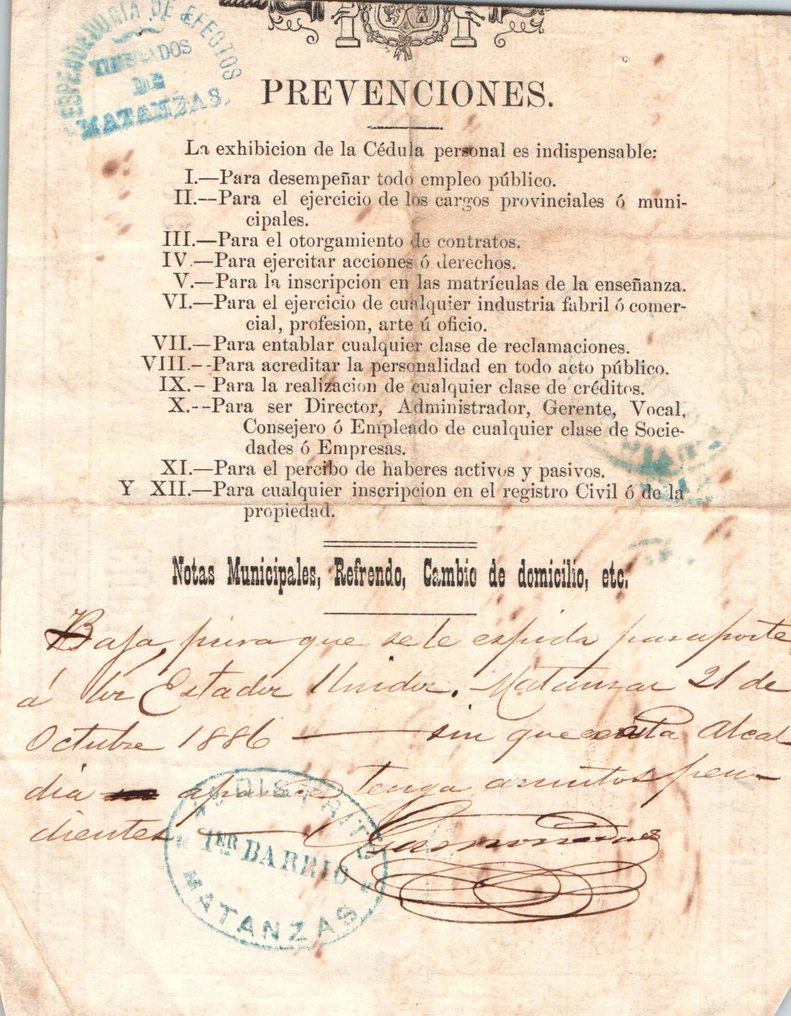 ESPENDEDURIA DE EFECTOS
TIMBRADOS
DE
MATANZAS
PREVENCIONES.
La exhibicion de la Cédula personal es indispensable:
I.—Para desempeñar todo empleo público.
II.--Para el ejercicio de los cargos provinciales ó muni-
cipales.
III.—Para el otorgamiento de contratos.
IV.—Para ejercitar acciones ó derechos.
V.—Para la inscripcion en las matrículas de la enseñanza.
VI.—Para el ejercicio de cualquier industria fabril ó comer-
cial, profesion, arte ú oficio.
VII.—Para entablar cualquier clase de reclamaciones.
VIII.--Para acreditar la personalidad en todo acto público.
IX.- Para la realizacion de cualquier clase de créditos.
X.--Para ser Director, Administrador, Gerente, Vocal,
Consejero ó Empleado de cualquier clase de Socie-
dades ó Empresas.
XI.—Para el percibo de haberes activos y pasivos.
Y XII.—Para cualquier inscripcion en el registro Civil ó de la
propiedad.
Notas Municipales, Refrendo, Cambio de domicilio, etc.
Baja, para que se le espida pasaporte
á los Estados Unidos. Matanzas 21 de
Octubre 1886 — sin que en esta Alcal
dia aparezca tenga asuntos pen-
dientes —
DISTRITO
1ER BARRIO
MATANZAS